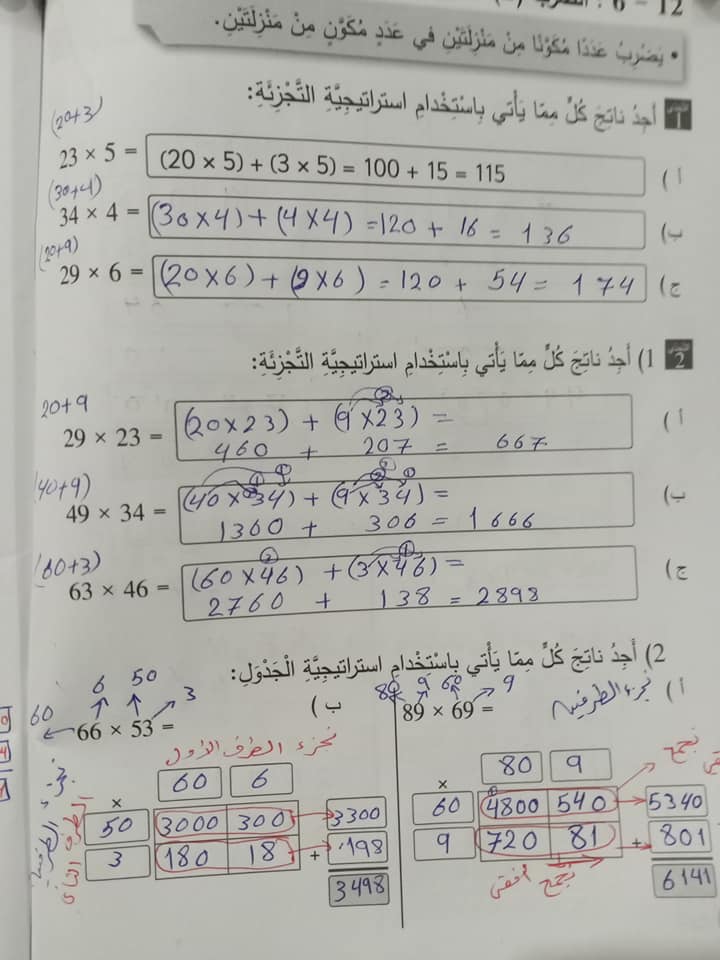 12 - 6 : الضرب
• يَضْرِبُ عَدَدًا مُكَوَّنًا مِنْ مَنْزِلَتَيْنِ في عَدَدٍ مُكَوَّنٍ مِنْ مَنْزِلَتَيْنِ.
1 أَجِدُ ناتِجَ كُلٍّ مِمّا يَأْتي بِاسْتِخْدامِ استراتيجِيَّةِ التَّجْزِئَةِ:
(20+3)
أ ) 23 × 5 = (20 × 5) + (3 × 5) = 100 + 15 = 115
(30+4)
ب) 34 × 4 = (30×4) + (4×4) = 120 + 16 = 136
(20+9)
ج) 29 × 6 = (20×6) + (9×6) = 120 + 54 = 174
2 1) أَجِدُ ناتِجَ كُلٍّ مِمّا يَأْتي بِاسْتِخْدامِ استراتيجِيَّةِ التَّجْزِئَةِ:
20+9
أ ) 29 × 23 = (20×23) + (9×23) =
460 + 207 = 667
(40+9)
ب) 49 × 34 = (40×34) + (9×34) =
1360 + 306 = 1666
(60+3)
ج) 63 × 46 = (60×46) + (3×46) =
2760 + 138 = 2898
2) أَجِدُ ناتِجَ كُلٍّ مِمّا يَأْتي بِاسْتِخْدامِ استراتيجِيَّةِ الْجَدْوَلِ:
أ ) 89 × 69 =
80 9 60 9
نجزء الطرفين
80 9
×
60 4800 540 5340
9 720 81 + 801
6141
نجمع
نجمع أفقي
ب ) 66 × 53 =
60 6 50 3
نجزء الطرف الأول
60 6
×
50 3000 300 3300
3 180 18 + 198
3498
الطرف الثاني